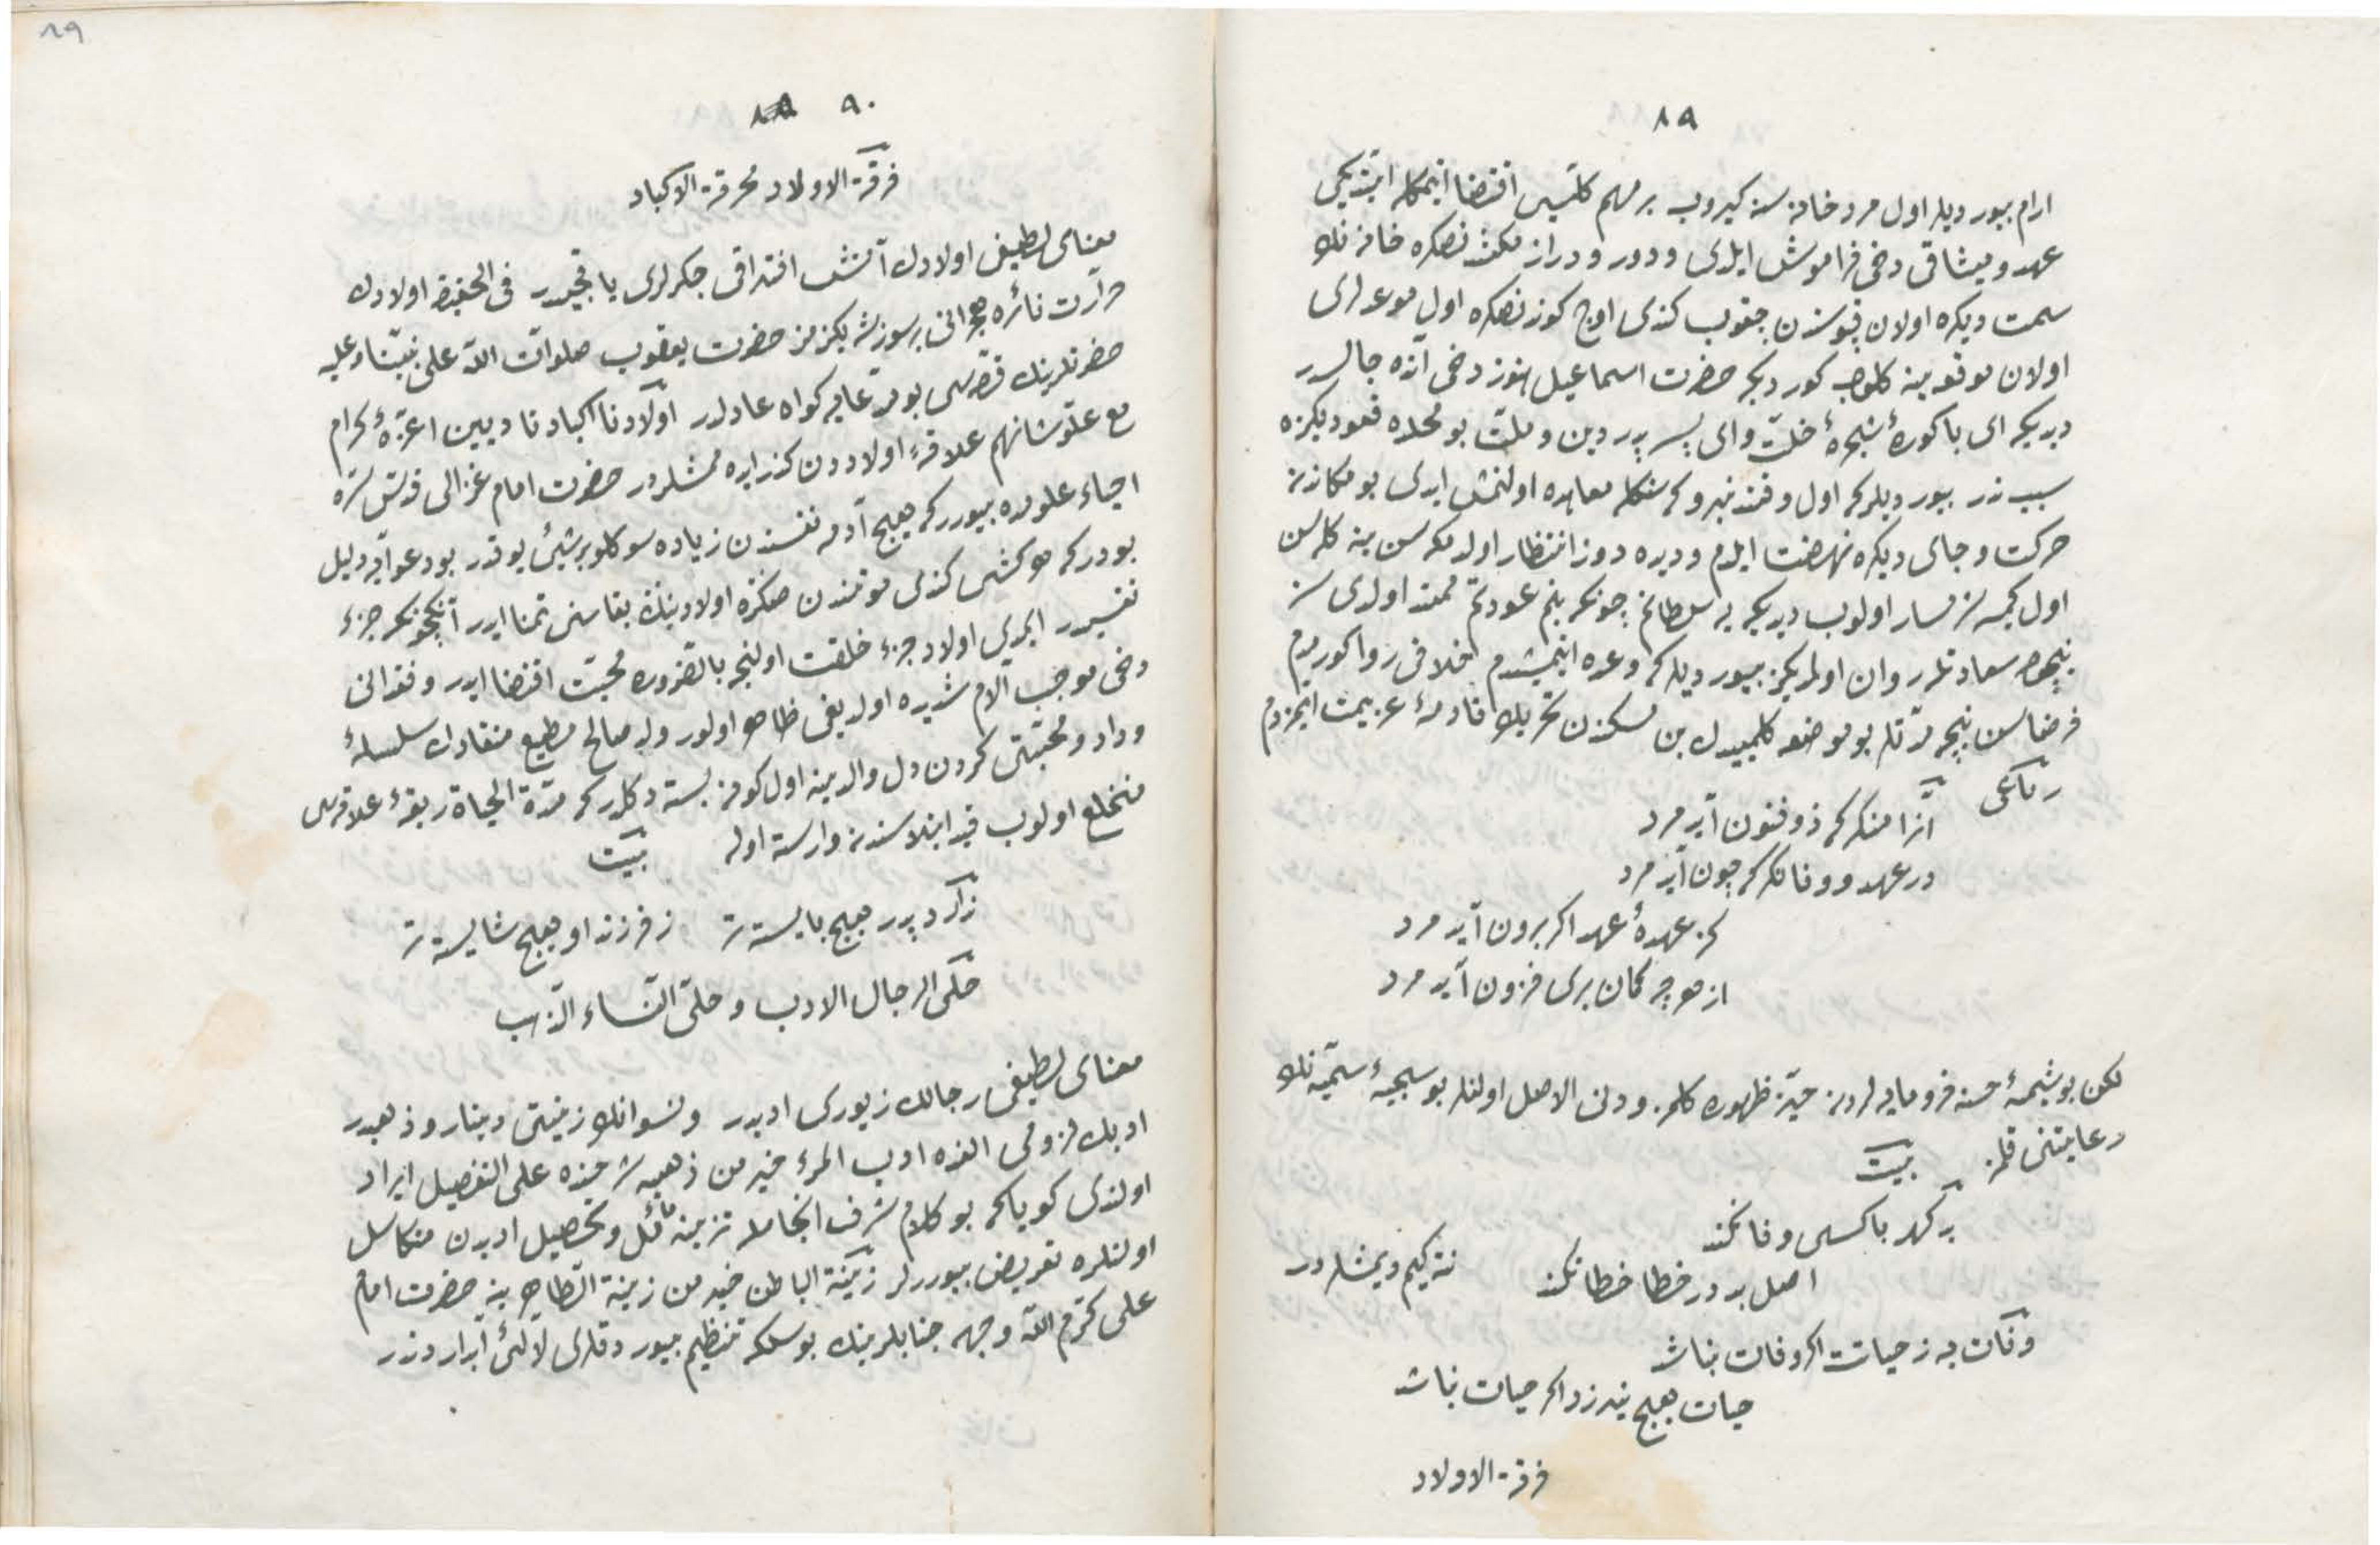 ٨٩
ارام بیوردیلر اول مرد خانه سنه کیروب بر مهم کلیسی اقتضا ایتمکله ایتدیکی
عهد و میثاقی دخی فراموش ایلدی و دور و دراز مکثدنصکره خانه نك
سمت دیکره اولان قپوسندن چقوب کندی اوچ کوندنصکره اول موعدلری
اولان موقعه ینه کلوب کوردیکه حضرت اسماعیل هنوز دخی آنده جالسدر
دیدیکه ای باکورهٔ شجرهٔ خلّت وای پسر پدر دین و ملّت بو محلده قعودیکزه
سبب ندر بیوردیلرکه اول وقتدنبروکه سنکله معاهده اولنمش ایدی بو مکاندن
حرکت و جای دیکره نهضت ایلمدم و دیده دوز انتظار اولدمکه سن ینه کله سن
اول کمسه شرمسار اولوب دیدیکه یا سلطانم چونکه بنم عودتم ممتد اولدی سز
نیچون سعادتلر روان اولمدیکز بیوردیلرکه وعده ایتمشدم خلافی روا کورمدم
فرضا سن نیچه مدّتلر بو موضعه کلمیدك بن مسکندن تحریك قادمهٔ عزیمت ایمزدم
رباعی
آنرا منکر که ذوفنون آید مرد
در عهد و وفا نکر که چون آید مرد
کز عهدهٔ عهد اکر برون آید مرد
از هر چه کمان بری فزون آید مرد
لکن بو شیمهٔ حسنه فرومایه لردن حیّز ظهوره کلمز و دنی الاصل اولنلر بو سجیهٔ سنیّه نك
رعایتنی قلمز بیت
بد کهر با کسی وفا نکند
اصل بد در خطا خطا نکند نته کیم دیمشلردر
وفات به ز حیات اکر وفات نباشد
حیات هیچ نیرزد اکر حیات نباشد
فرقة الاولاد
٨٩
٩٠
فرقة الاولاد محرقة الاکباد
معنای لطیفی اولادك آتش افتراقی جکرلری یاقیجیدر فی الحقیقه اولادك
حرارت نائره هجرانی پرسوزشه بکزمز حضرت یعقوب صلوات اللّه علی نبیّنا وعلیه
حضرتلرینك قصّه سی بو مدّعایه کواه عادلدر اولادنا اکبادنا دیین اعزّهٔ کرام
مع علوّ شانهم علاقهٔ اولاددن کذر ایده ممشلردر حضرت امام غزالی قدّس سرّه
احیاء علومده بیوررکه هیچ آدمه نفسندن زیاده سوکلو بر شیئ یوقدر بو دعوایه دلیل
بودرکه هر کشی کندی موتندن صکره اولادینك بقاسنی تمنا ایدر آنکچونکه جزء
نفسیدر ایمدی اولاد جزء خلقت اولنجه بالضروره محبّت اقتضا ایدر و فقدانی
دخی موجب آلام شدیده اولدیغی ظاهر اولور ولد صالح مطیع منقادك سلسلهٔ
وداد و محبّتی کردن دل والدینه اول کونه بسته دکلدرکه مدّة الحیاة ربقهٔ علاقه سی
منخلع اولوب قید ابتلاسندن وارسته اوله بیت
نکرد پدر هیچ بایسته تر ز فرزند او هیچ شایسته تر
حلی الرجال الادب و حلی النّساء الذّهب
معنای لطیفی رجالك زیوری ادبدر و نسوانك زینتی دینار و ذهبدر
ادبك لزومی الفده ادب المرء خیر من ذهبه شرحنده علی التفصیل ایراد
اولندی کویاکه بو کلام شرف انجامله تزیینه مائل و تحصیل ادبدن متکاسل
اولنلره تعریض بیوررلر زینة الباطن خیر من زینة الظاهر ینه حضرت امام
علی کرّم اللّه وجهه جنابلرینك بو سلکه تنظیم بیوردقلری لآلئ آبدارندندر